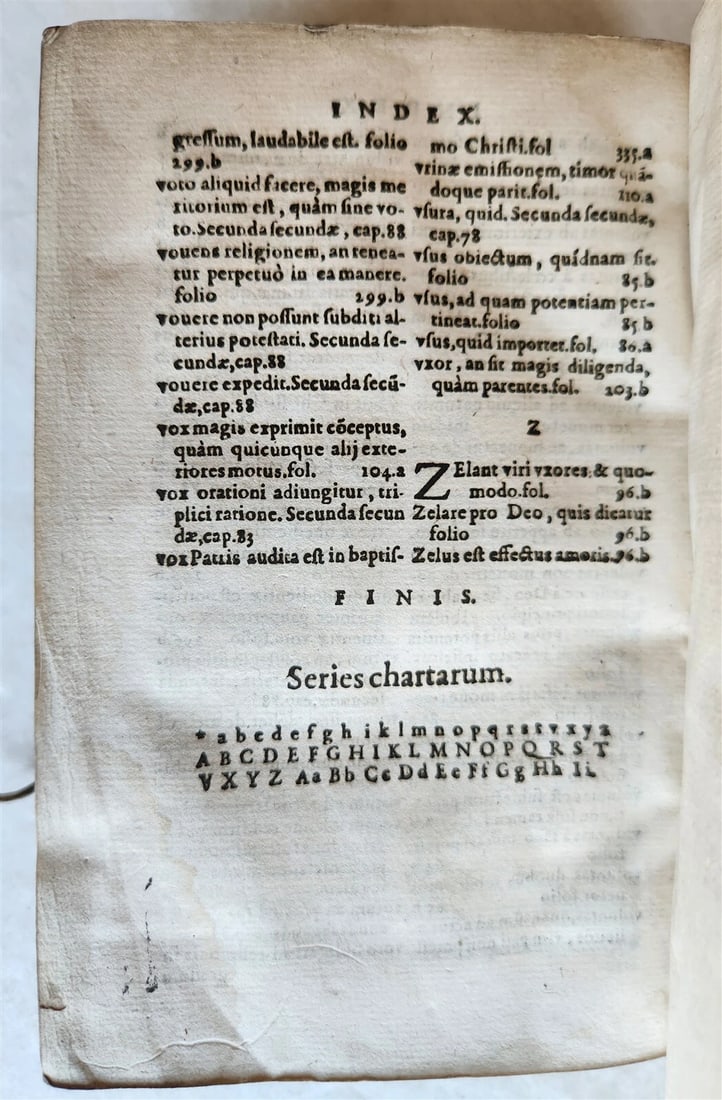 INDEX.
gressum, laudabile est. folio
299.b
voto aliquid facere, magis me
ritorium est, quàm sine vo-
to. Secunda secundæ, cap.88
vouens religionem, an tenea-
tur perpetuò in ea manere.
folio 299.b
vouere non possunt subditi al-
terius potestati. Secunda se-
cundæ, cap.88
vouere expedit. Secunda secũ-
dæ, cap.88
vox magis exprimit cõceptus,
quàm quicunque alij exte-
riores motus, fol. 104.a
vox orationi adiungitur, tri-
plici ratione. Secunda secun
dæ, cap.83
vox Patris audita est in baptis-
mo Christi. fol 335.a
vrinæ emissionem, timor quã-
doque parit. fol. 110.a
vsura, quid. Secunda secundæ,
cap.78
vsus obiectum, quidnam sit.
folio 85.b
vsus, ad quam potentiam per-
tineat. folio 85.b
vsus, quid importet. fol. 80.a
vxor, an sit magis diligenda,
quàm parentes. fol. 103.b
Z
ZElant viri vxores: & quo-
modo. fol. 96.b
Zelare pro Deo, quis dicatur
folio 96.b
Zelus est effectus amoris. 96.b
FINIS.
Series chartarum.
* a b c d e f g h i k l m n o p q r s t v x y z
A B C D E F G H I K L M N O P Q R S T
V X Y Z Aa Bb Cc Dd Ee Ff Gg Hh Ii.